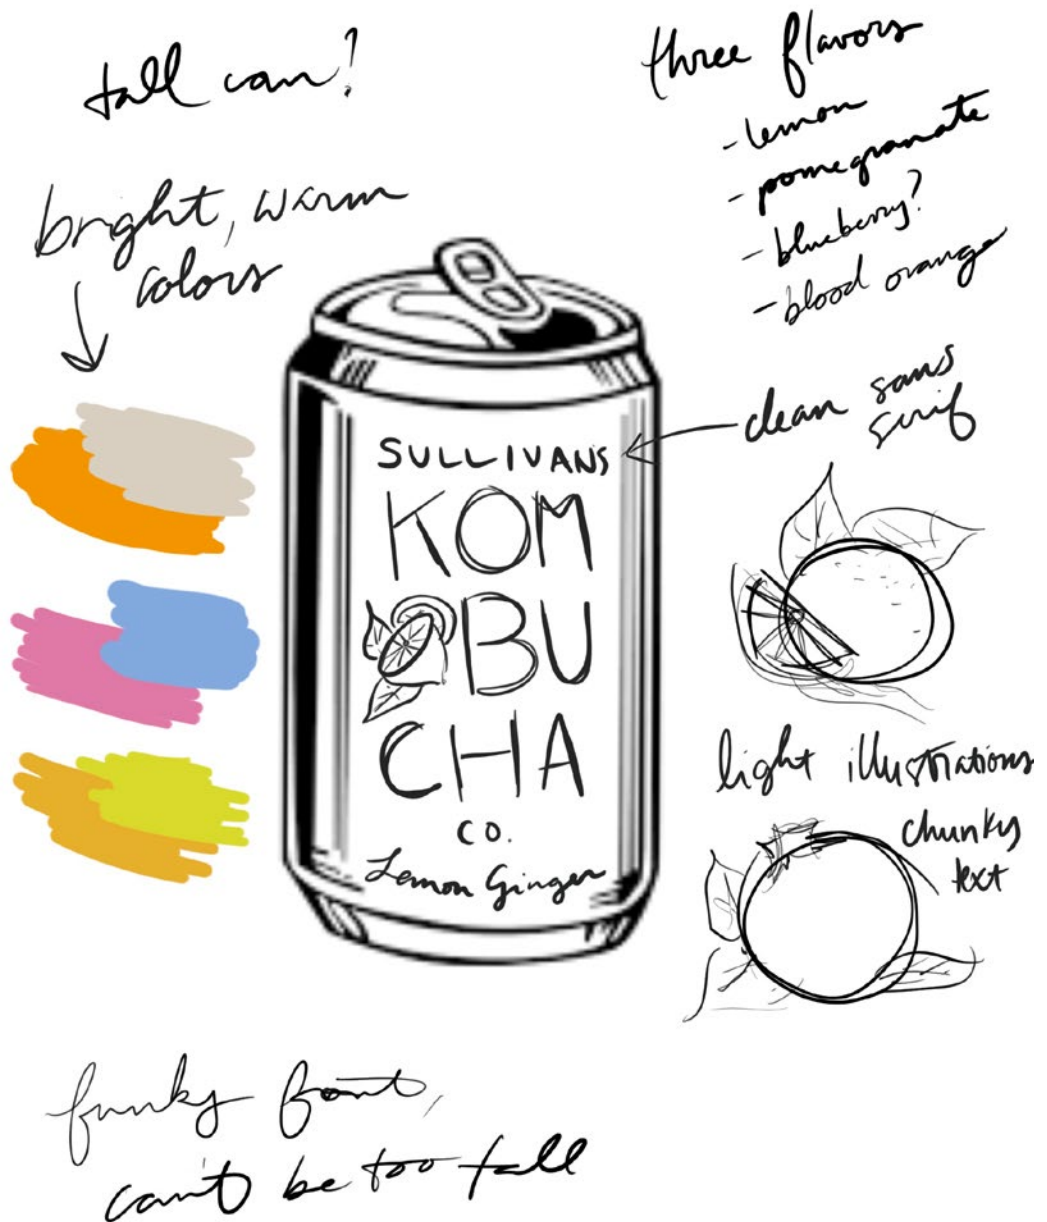 tall can?
three flavors
- lemon
- pomegranate
- blueberry?
- blood orange
bright, warm
colors
clean sans
serif
SULLIVANS
KOM
BU
CHA
CO.
Lemon Ginger
light illustrations
chunky
text
funky font,
can't be too tall